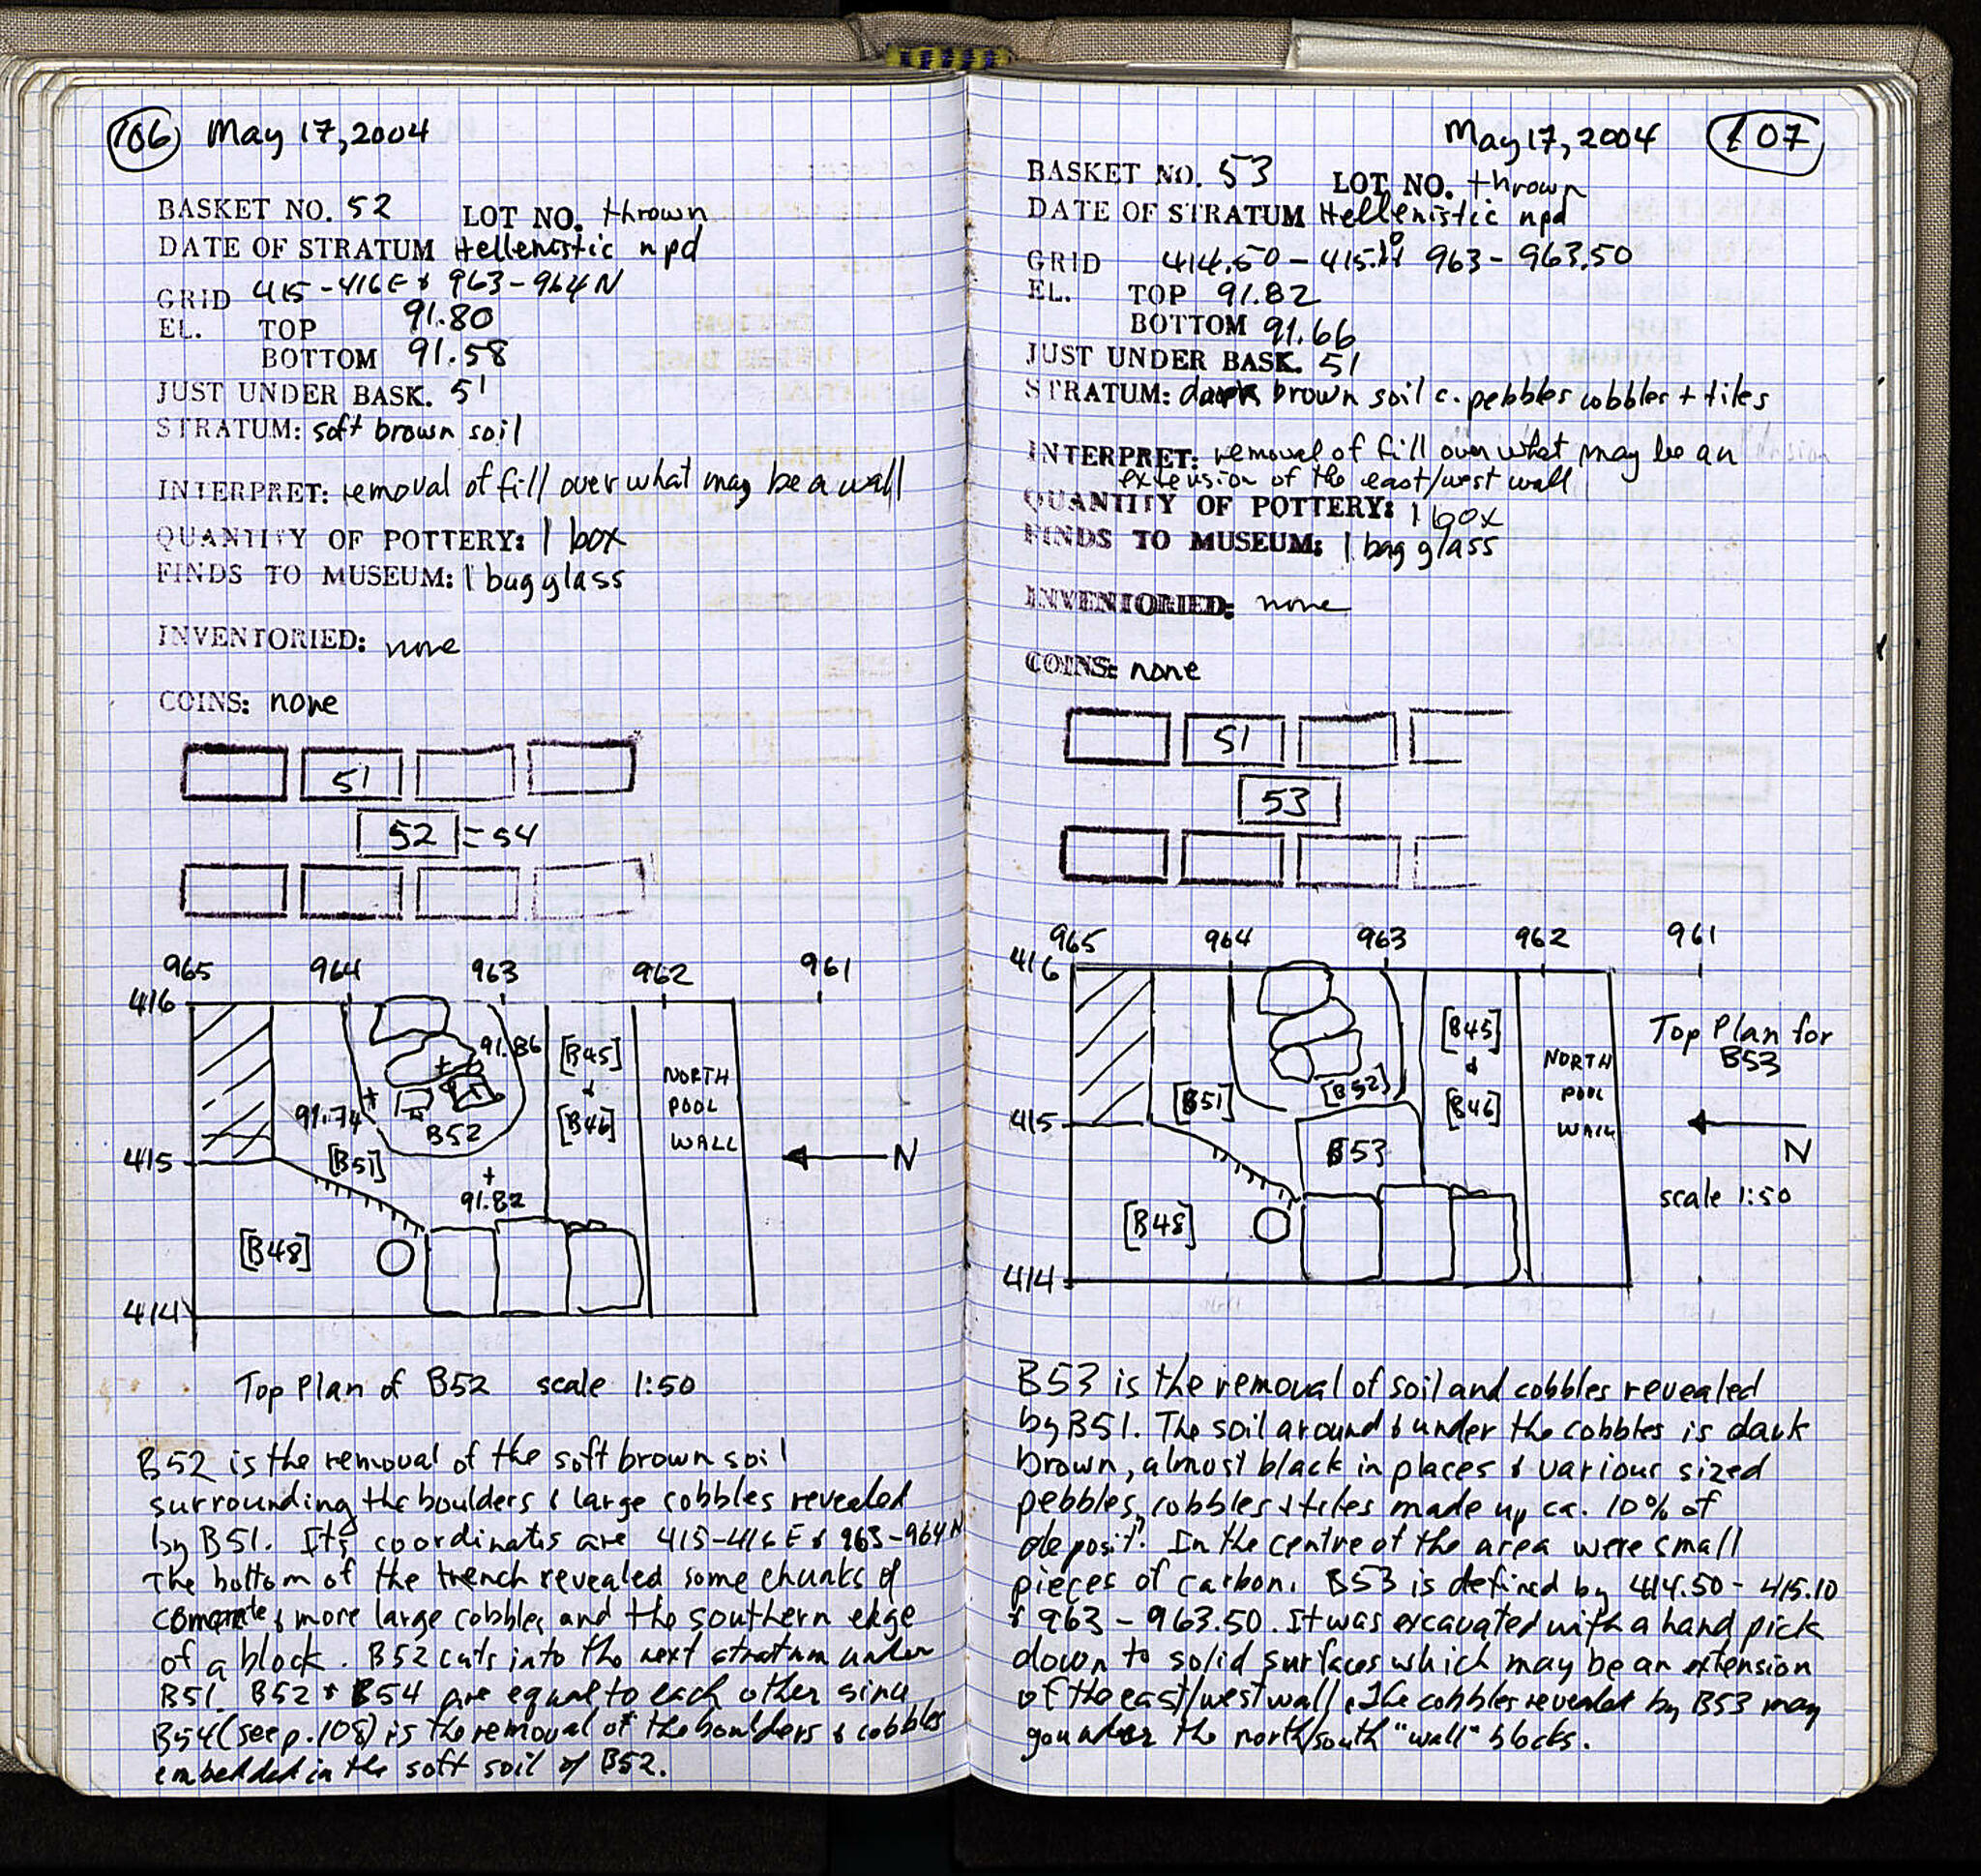 106 May 17, 2004
BASKET NO. 52 LOT NO. thrown
DATE OF STRATUM Hellenistic npd
GRID 415-416E & 963-964N
EL. TOP 91.80
BOTTOM 91.58
JUST UNDER BASK. 51
STRATUM: soft brown soil
INTERPRET: removal of fill over what may be a wall
QUANTITY OF POTTERY: 1 box
FINDS TO MUSEUM: 1 bag glass
INVENTORIED: none
COINS: none
51
52 = 54
965 964 963 962 961
416
91.86
[B45]
&
[B46]
NORTH
POOL
WALL
91.74
B52
415
[B51]
N
91.82
[B48]
414
Top Plan of B52 scale 1:50
B52 is the removal of the soft brown soil
surrounding the boulders & large cobbles revealed
by B51. Its coordinates are 415-416E & 963-964N
The bottom of the trench revealed some chunks of
& more large cobbles and the southern edge
of a block. B52 cuts into the next stratum under
B51. B52 & B54 are equal to each other since
B54 (see p. 108) is the removal of the boulders & cobbles
embedded in the soft soil of B52.
May 17, 2004 107
BASKET NO. 53 LOT NO. thrown
DATE OF STRATUM Hellenistic npd
GRID 414.50-415.10 963-963.50
EL. TOP 91.82
BOTTOM 91.66
JUST UNDER BASK. 51
STRATUM: dark brown soil c. pebbles cobbles + tiles
INTERPRET: removal of fill over what may be an
extension of the east/west wall
QUANTITY OF POTTERY: 1 box
FINDS TO MUSEUM: 1 bag glass
INVENTORIED: none
COINS: none
51
53
965 964 963 962 961
416
[B45]
&
[B46]
NORTH
POOL
WALL
Top Plan for
B53
[B51]
[B52]
415
B53
N
scale 1:50
[B48]
414
B53 is the removal of soil and cobbles revealed
by B51. The soil around & under the cobbles is dark
brown, almost black in places & various sized
pebbles, cobbles & tiles made up ca. 10% of
deposit. In the centre of the area were small
pieces of carbon. B53 is defined by 414.50-415.10
& 963-963.50. It was excavated with a hand pick
down to solid surfaces which may be an extension
of the east/west wall. The cobbles revealed by B53 may
go under the north/south "wall" blocks.